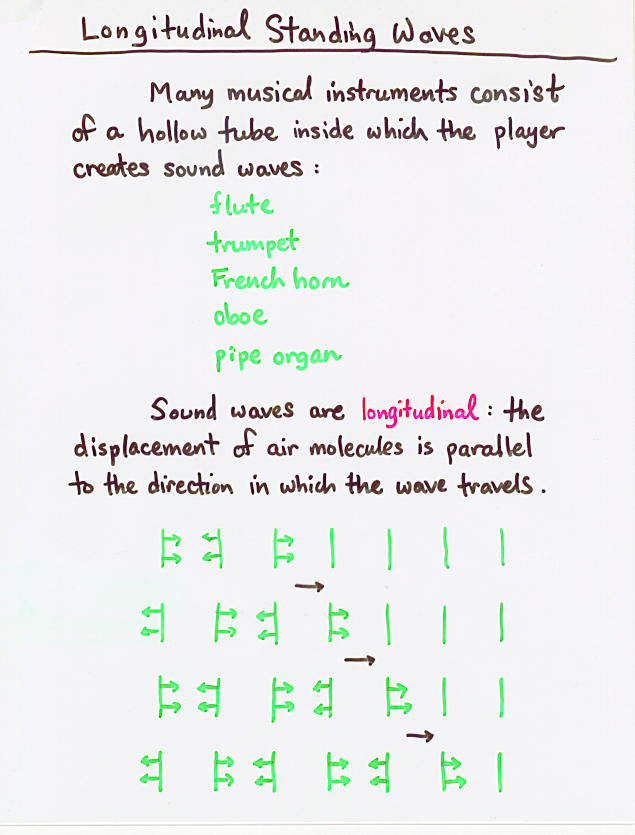 Longitudinal Standing Waves
Many musical instruments consist
of a hollow tube inside which the player
creates sound waves :
flute
trumpet
French horn
oboe
pipe organ
Sound waves are longitudinal : the
displacement of air molecules is parallel
to the direction in which the wave travels .